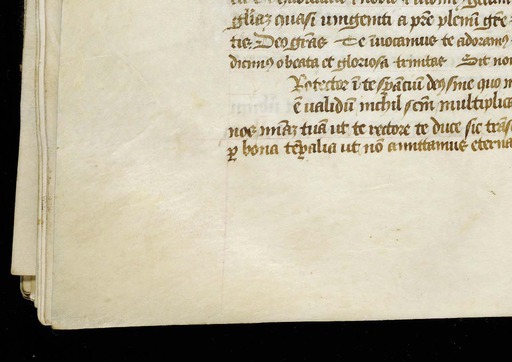 gl̄iaz quasi unigeniti a pr̄e plenū gr̄e
tis Deo gr̄as Te īuocamus te adoramus
dicimus o beata et gloriosa trinitas Sit no
Rotector ī te sp̄anciū deus sine quo n
ē ualidū nichil sc̄m multiplica
nos mīaz tuā ut te rectore te duce sic trās
ꝑ bona tēp̄alia ut nō amittamus eterna